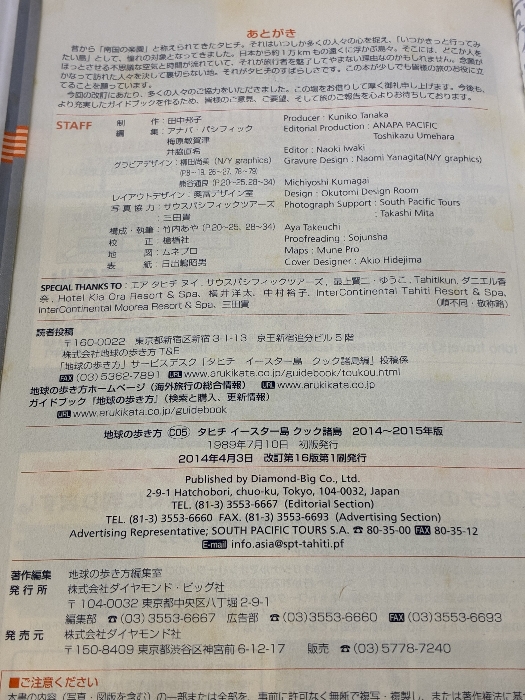 あとがき
昔から「南国の楽園」と称えられてきたタヒチ。それはいつしか多くの人々の心を捉え、「いつかきっと行ってみ
たい島」として、憧れの対象となってきました。日本から約1万kmもの遠くに浮かぶ島々。そこには、どこか人を
ほっとさせる不思議な空気と時間が流れていて、それが旅行者を魅了してやまない理由なのかもしれません。念願が
かなって訪れた人々を決して裏切らない地。それがタヒチのすばらしさです。この本が少しでも皆様の旅のお役に立
てることを願っています。
今回の改訂にあたり、多くの人々のご協力をいただきました。この場をお借りして厚く御礼申し上げます。今後も、
より充実したガイドブックを作るため、皆様のご意見、ご要望、そして旅のご報告を心よりお待ちしております。
STAFF
制 作:田中邦子 Producer : Kuniko Tanaka
編 集:アナパ・パシフィック Editorial Production : ANAPA PACIFIC
梅原敏賀津 Toshikazu Umehara
井脇直希 Editor : Naoki Iwaki
グラビアデザイン:柳田尚美(N/Y graphics) Gravure Design : Naomi Yanagita(N/Y graphics)
(P.8~19, 26~27, 76~79)
熊谷通良(P.20~25, 28~34) Michiyoshi Kumagai
レイアウトデザイン:奥富デザイン室 Design : Okutomi Design Room
写真協力:サウスパシフィックツアーズ Photograph Support : South Pacific Tours
:三田貴 Takashi Mita
構成・執筆:竹内あや(P.20~25, 28~34) Aya Takeuchi
校 正:槍楯社 Proofreading : Sojunsha
地 図:ムネプロ Maps : Mune Pro
表 紙:日出嶋昭男 Cover Designer : Akio Hidejima
SPECIAL THANKS TO:エア タヒチ ヌイ、サウスパシフィックツアーズ、最上賢二・ゆうこ、Tahitikun、ダニエル香
奈、Hotel Kia Ora Resort & Spa、横井洋太、中村裕子、InterContinental Tahiti Resort & Spa、
InterContinental Moorea Resort & Spa、三田貴 (順不同・敬称略)
読者投稿
〒160-0022 東京都新宿区新宿3-1-13 京王新宿追分ビル5階
株式会社地球の歩き方T&E
「地球の歩き方」サービスデスク「タヒチ イースター島 クック諸島編」投稿係
FAX (03)5362-7891 URL www.arukikata.co.jp/guidebook/toukou.html
地球の歩き方ホームページ(海外旅行の総合情報) URL www.arukikata.co.jp
ガイドブック『地球の歩き方』(検索と購入、更新情報)
URL www.arukikata.co.jp/guidebook
地球の歩き方 C05 タヒチ イースター島 クック諸島 2014~2015年版
1989年7月10日 初版発行
2014年4月3日 改訂第16版第1刷発行
Published by Diamond-Big Co., Ltd.
2-9-1 Hatchobori, chuo-ku, Tokyo, 104-0032, Japan
TEL. (81-3) 3553-6667 (Editorial Section)
TEL. (81-3) 3553-6660 FAX. (81-3) 3553-6693 (Advertising Section)
Advertising Representative; SOUTH PACIFIC TOURS S.A. ☎ 80-35-00 FAX 80-35-12
E-mail info.asia@spt-tahiti.pf
著作編集 地球の歩き方編集室
発行所 株式会社ダイヤモンド・ビッグ社
〒104-0032 東京都中央区八丁堀2-9-1
編集部 ☎(03)3553-6667 広告部 ☎(03)3553-6660 FAX (03)3553-6693
発売元 株式会社ダイヤモンド社
〒150-8409 東京都渋谷区神宮前6-12-17 販売 ☎(03)5778-7240
■ご注意ください
本書の内容(写真・図版を含む)の一部または全部を、事前に許可なく無断で複写・複製し、または著作権法に基